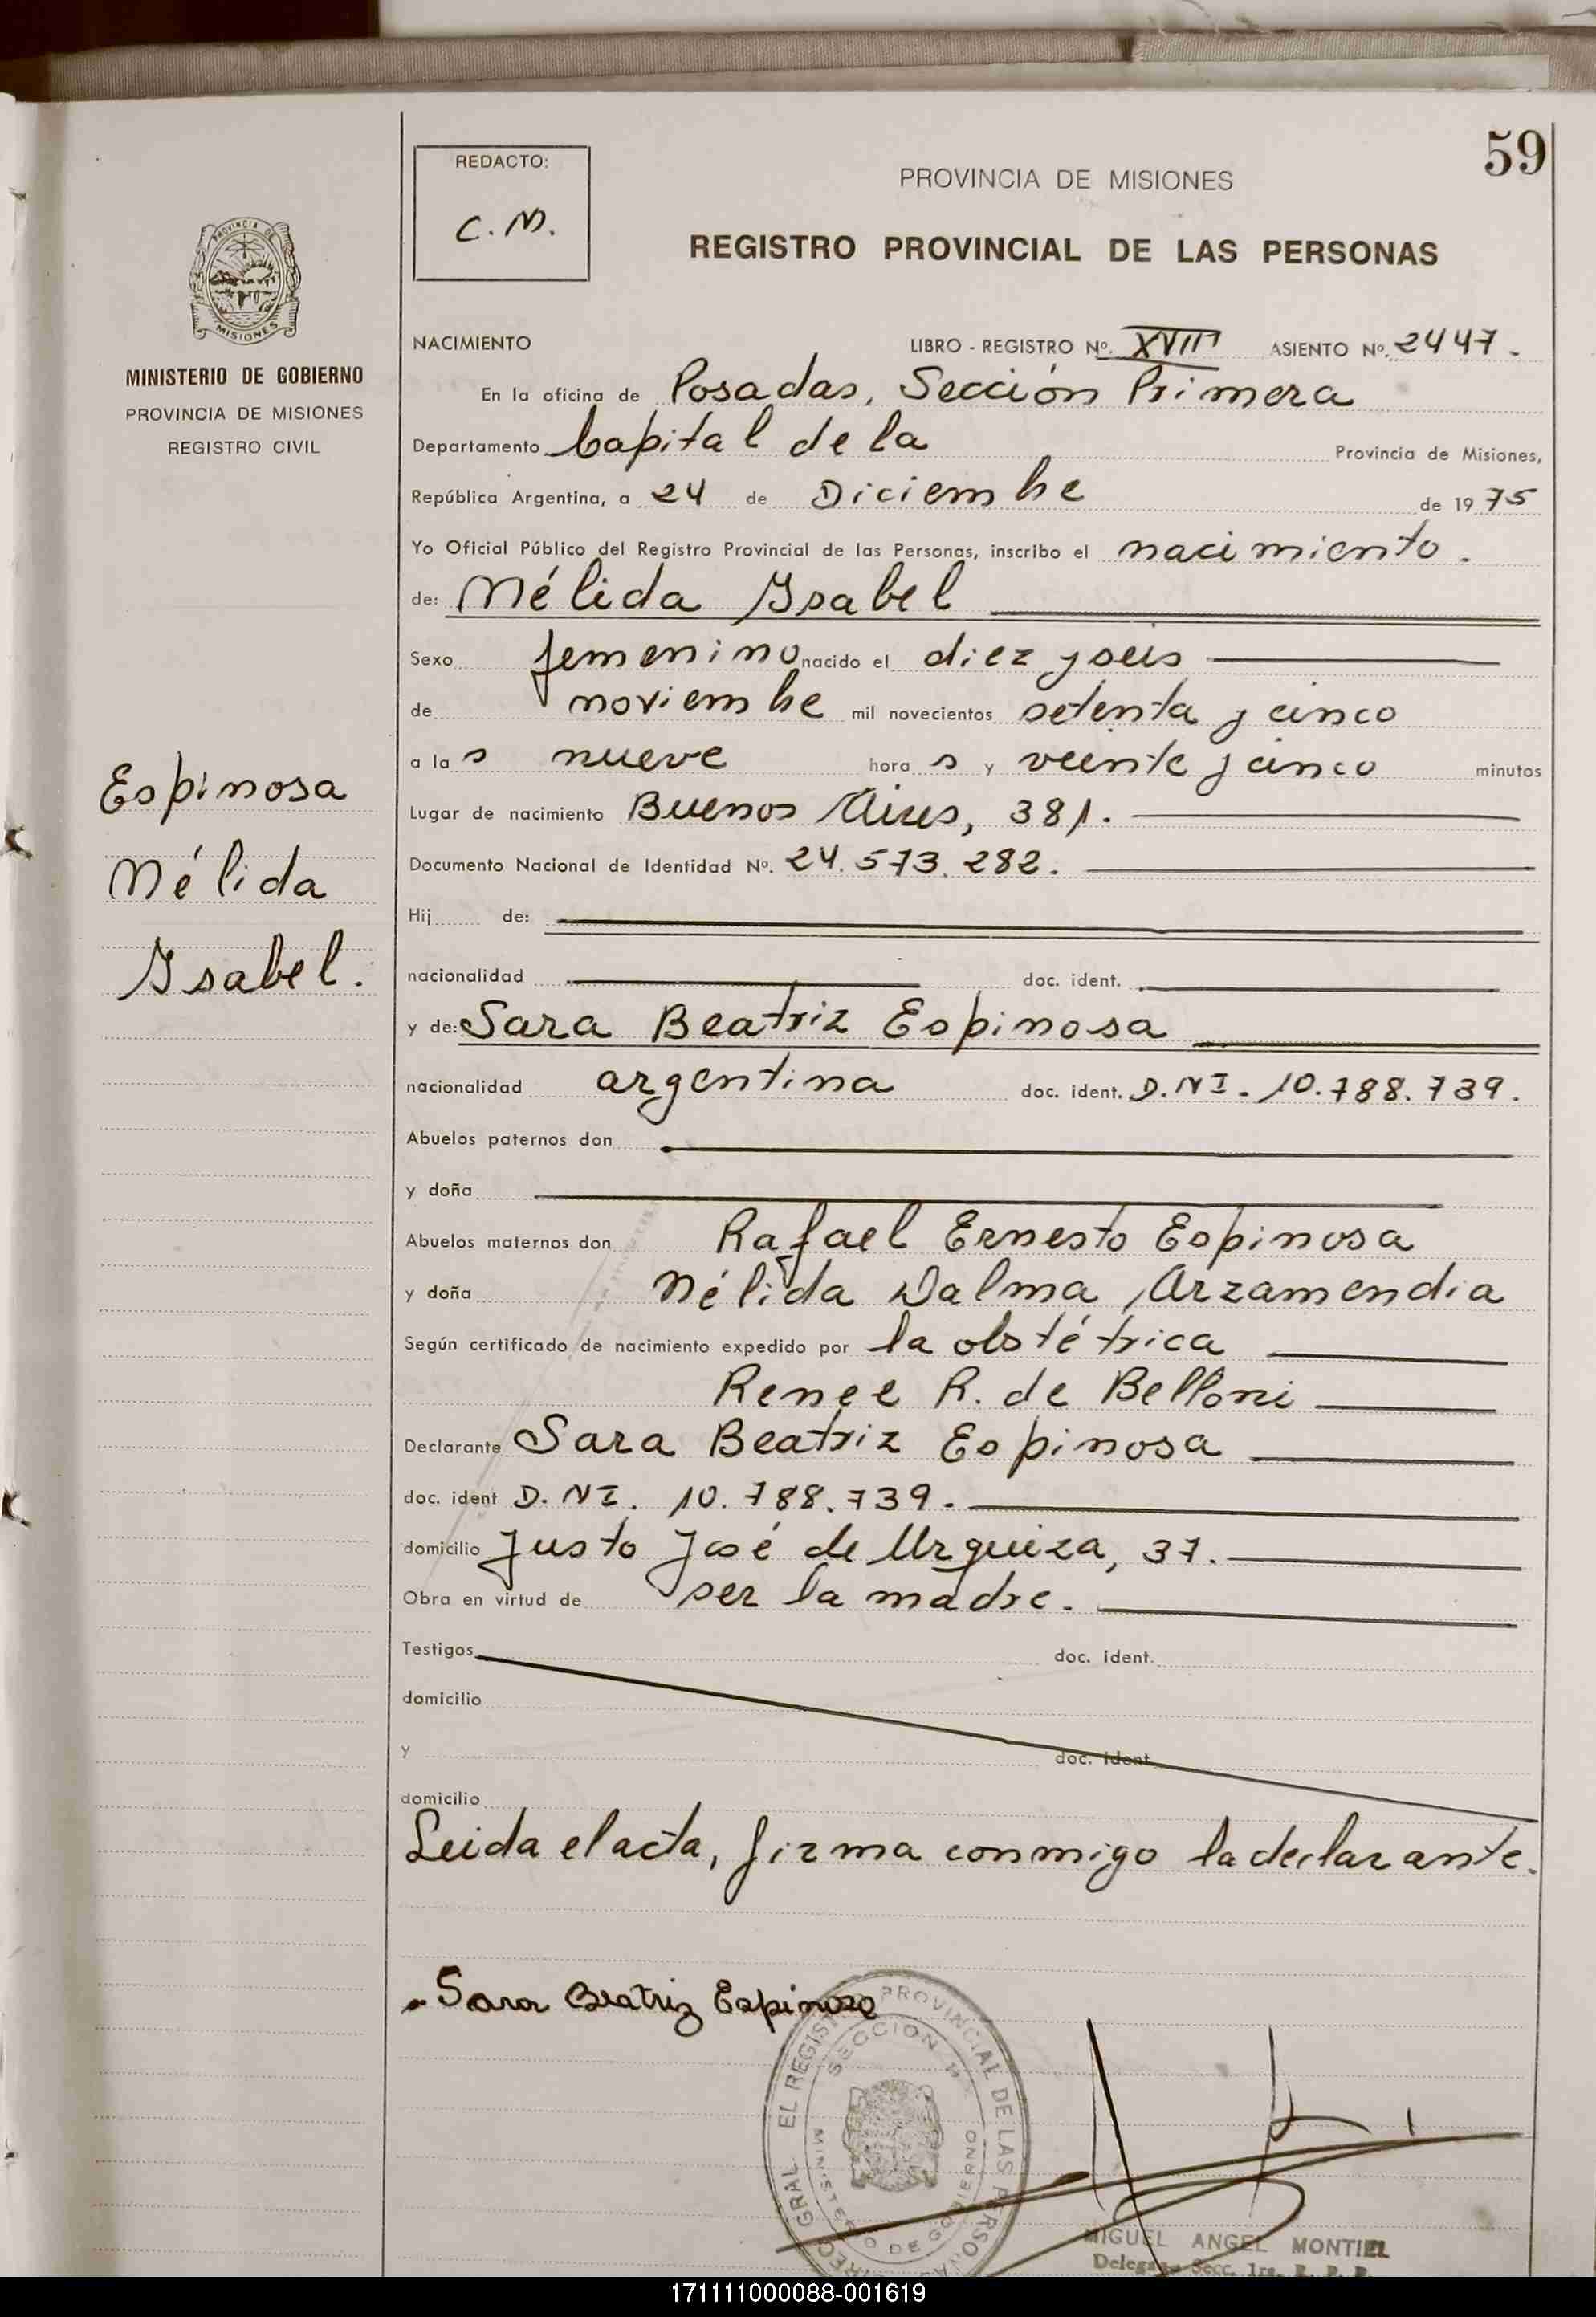 59
REDACTO:
C. M.
PROVINCIA DE MISIONES
REGISTRO PROVINCIAL DE LAS PERSONAS
PROVINCIA DE
MISIONES
MINISTERIO DE GOBIERNO
PROVINCIA DE MISIONES
REGISTRO CIVIL
NACIMIENTO LIBRO - REGISTRO Nº. ASIENTO Nº. 2447.
En la oficina de Posadas, Sección Primera
Departamento Capital de la Provincia de Misiones,
República Argentina, a 24 de Diciembre de 1975
Yo Oficial Público del Registro Provincial de las Personas, inscribo el nacimiento.
de: Nélida Ysabel
Sexo femenino nacido el diez y seis
de noviembre mil novecientos setenta y cinco
a las nueve horas y veinte y cinco minutos
Lugar de nacimiento Buenos Aires, 381.
Documento Nacional de Identidad Nº. 24.573.282.
Hij de:
nacionalidad doc. ident.
y de: Sara Beatriz Espinosa
nacionalidad argentina doc. ident. D.NI. 10.788.739.
Abuelos paternos don
y doña
Abuelos maternos don Rafael Ernesto Espinosa
y doña Nélida Dalma Arzamendia
Según certificado de nacimiento expedido por la obstétrica
Renee R. de Belloni
Declarante Sara Beatriz Espinosa
doc. ident D. NI. 10.788.739.
domicilio Justo José de Urquiza, 37.
Obra en virtud de ser la madre.
Testigos doc. ident.
domicilio
y doc. ident
domicilio
Leida el acta, firma conmigo la declarante.
Espinosa
Nélida
Ysabel.
Sara Beatriz Espinosa
EL REGISTRO PROVINCIAL DE LAS PERSONAS
SECCION 1ª
MINISTERIO DE GOBIERNO
MIGUEL ANGEL MONTIEL
Secc. 1ra. R. P. P.
171111000088-001619